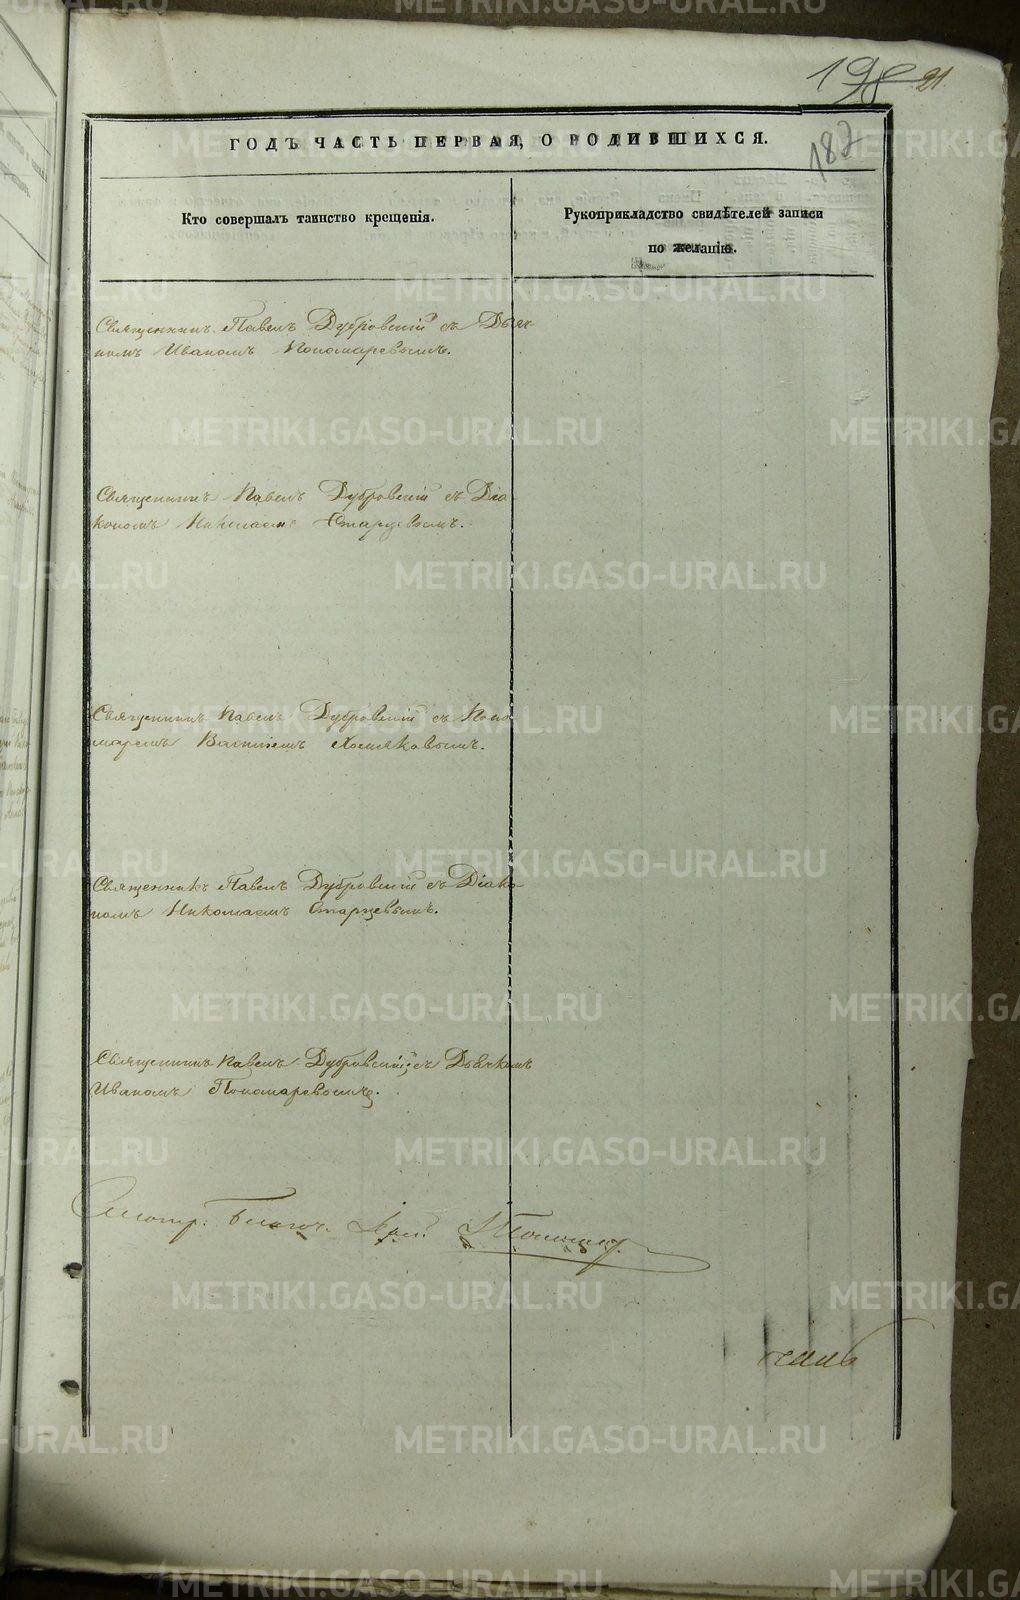 198 21
187
ГОДЪ ЧАСТЬ ПЕРВАЯ, О РОДИВШИХСЯ.
Кто совершалъ таинство крещенія.
Рукоприкладство свидѣтелей записи
по желанію.
Священникъ Павелъ Дубровскій съ Дьяч-
комъ Иваномъ Пономаревымъ.
Священникъ Павелъ Дубровскій съ Діа-
кономъ Николаемъ Старцевымъ.
Священникъ Павелъ Дубровскій съ Поно-
маремъ Хомяковымъ.
Священникъ Павелъ Дубровскій съ Діако-
номъ Николаемъ Старцевымъ.
Священникъ Павелъ Дубровскій съ Дьячкомъ
Иваномъ Пономаревымъ.
METRIKI.GASO-URAL.RU